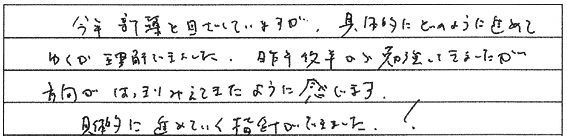 今年計画と目ざしていますが、具体的にどのように進めて
ゆくか理解できました。昨年後半から勉強してきましたが
方向がはっきりみえてきたように感じます。
具体的に進めていく指針ができました。!